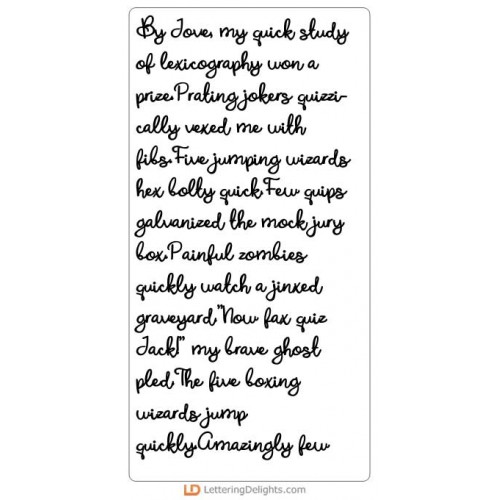 By Jove, my quick study
of lexicography won a
prize.Prating jokers quizzi-
cally vexed me with
fibs.Five jumping wizards
hex bolty quick.Few quips
galvanized the mock jury
box.Painful zombies
quickly watch a jinxed
graveyard."Now fax quiz
Jack!" my brave ghost
pled.The five boxing
wizards jump
quickly.Amazingly few
LD LetteringDelights.com